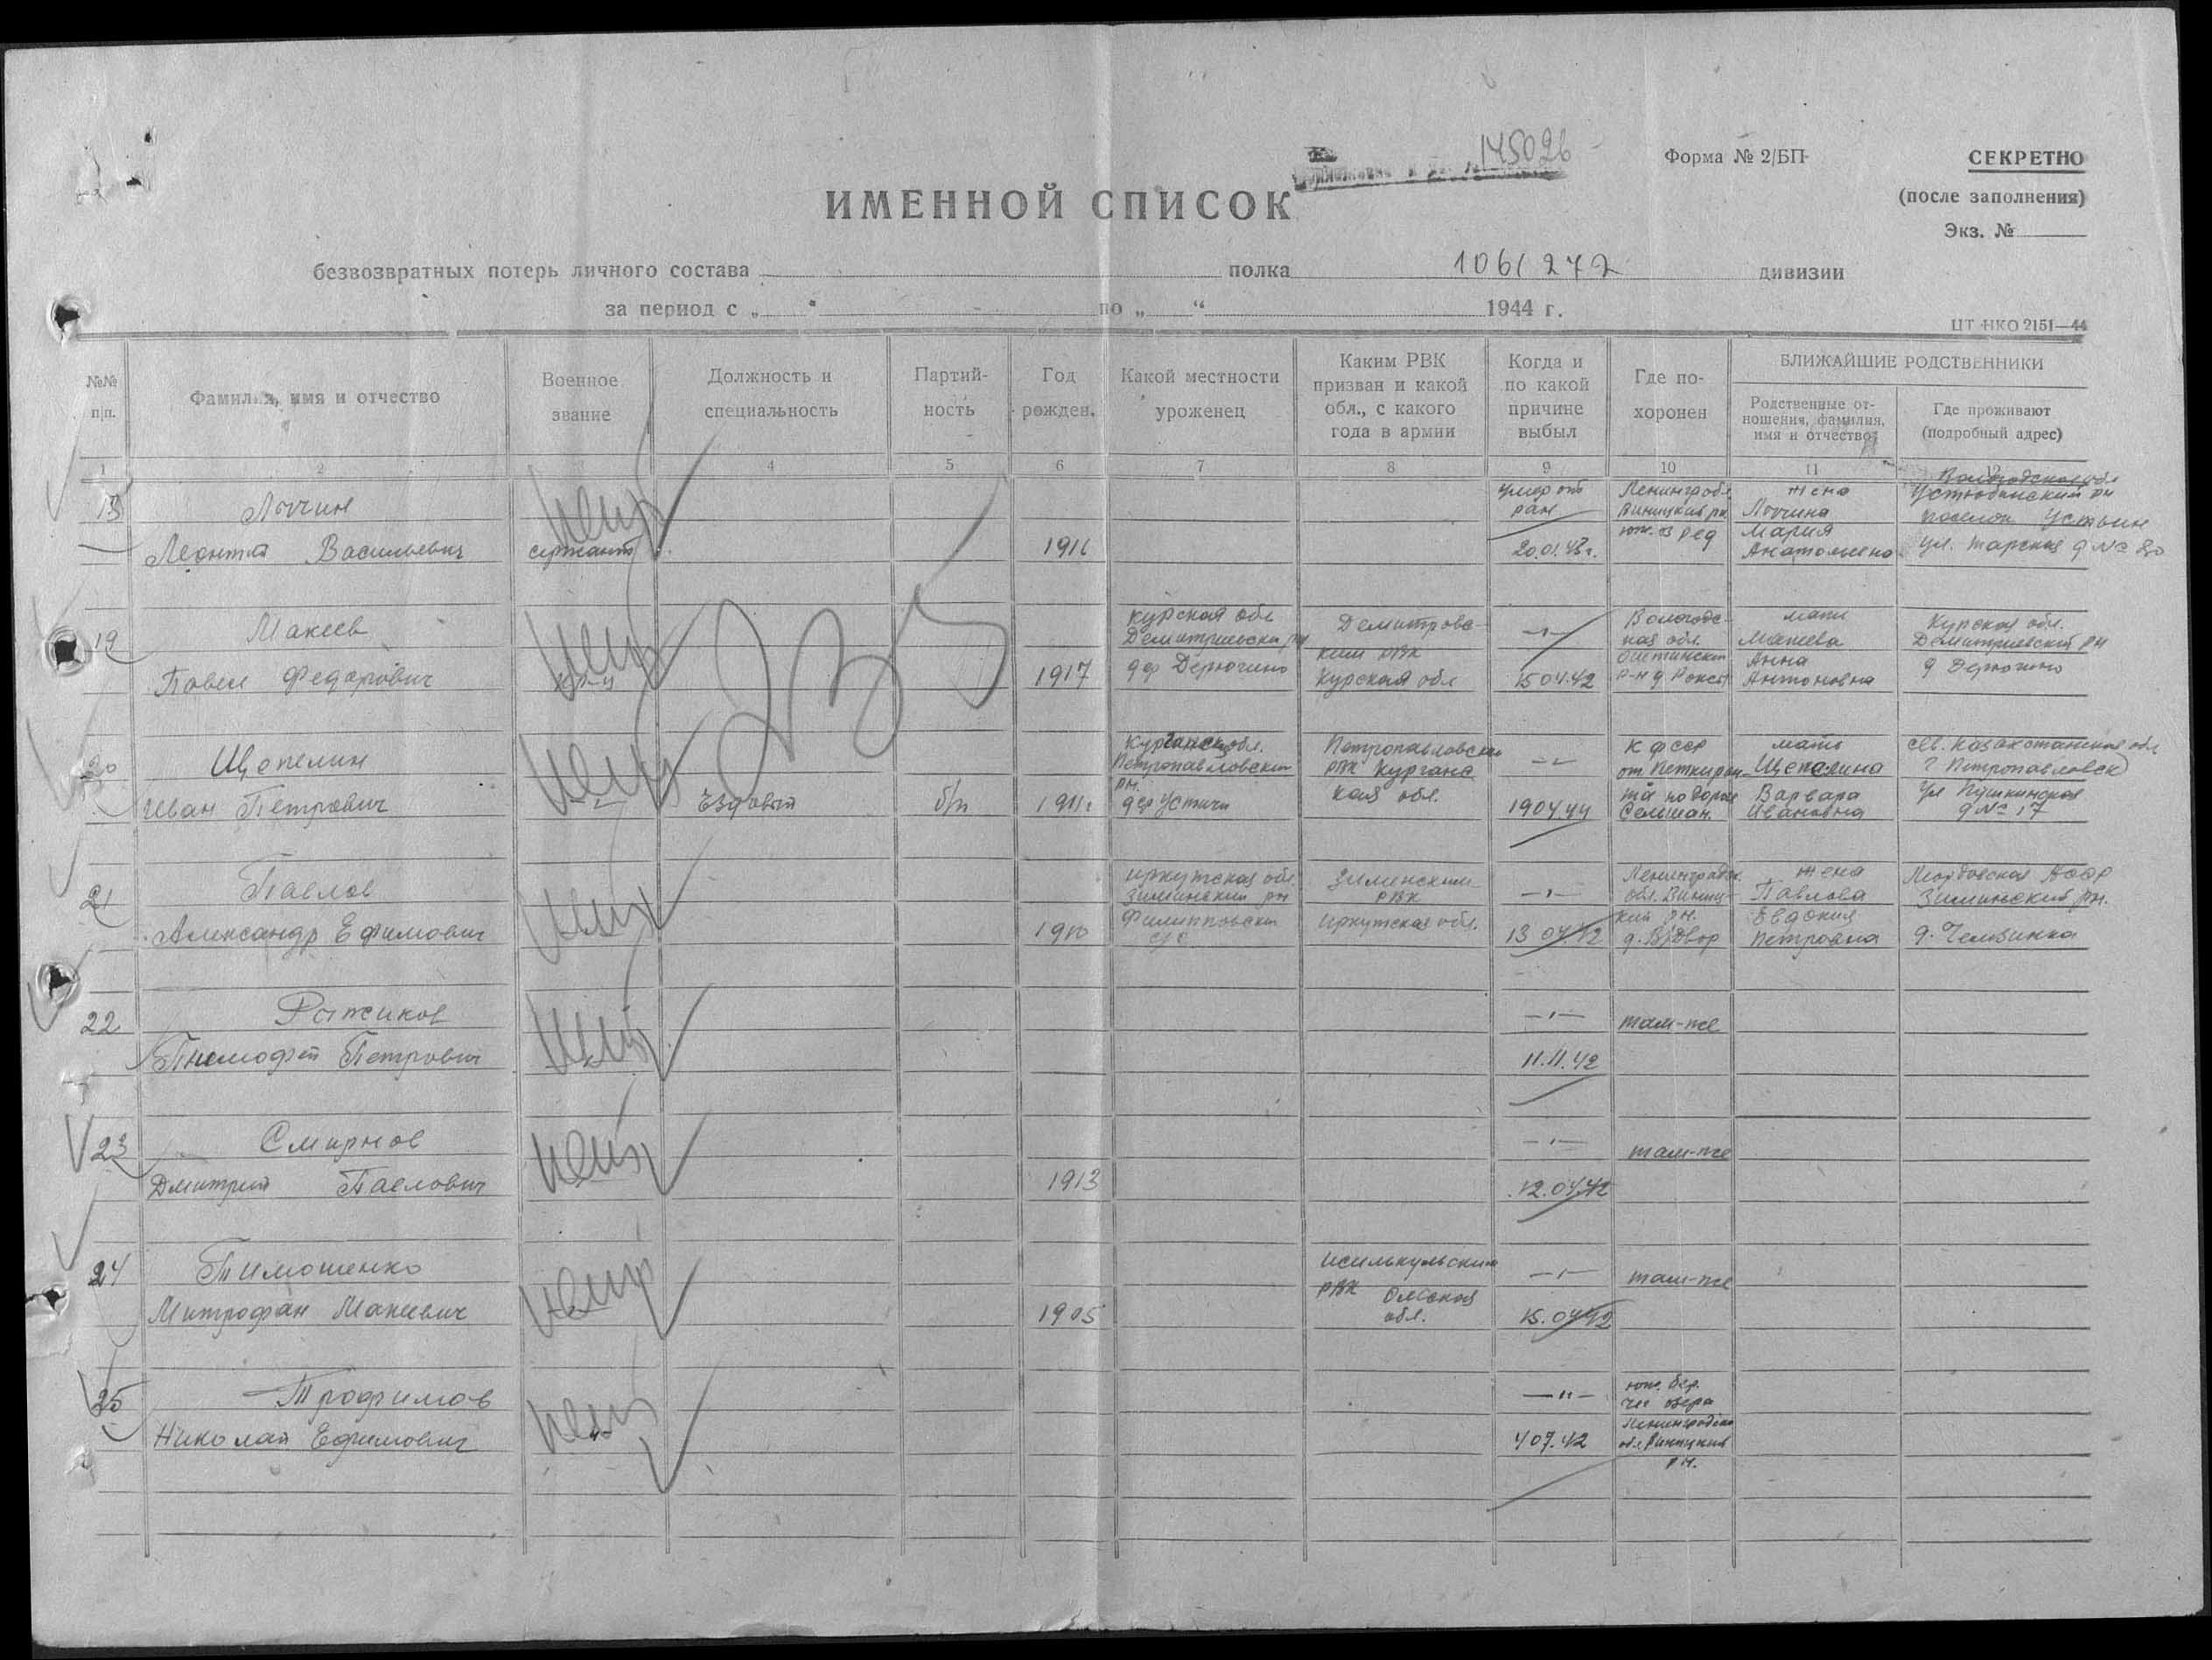 145026
Форма № 2/БП
СЕКРЕТНО
(после заполнения)
Экз. №
ИМЕННОЙ СПИСОК
безвозвратных потерь личного состава полка 1061 272 дивизии
за период с „ “ по „ “ 1944 г.
ЦТ НКО 2151—44
№№ п/п.
Фамилия, имя и отчество
Военное звание
Должность и специальность
Партийность
Год рожден.
Какой местности уроженец
Каким РВК призван и какой обл., с какого года в армии
Когда и по какой причине выбыл
Где похоронен
БЛИЖАЙШИЕ РОДСТВЕННИКИ
Родственные отношения, фамилия, имя и отчество
Где проживают (подробный адрес)
1 2 4 5 6 7 8 9 10 11 12
Леонтий Васильевич
сержант
1916
умер от ран
20.01.43г.
Ленингр обл.
Виницкий рн
жена
Мария
поселок Устьин
19
Макеев
Павел Федорович
кр-ц
1917
Курская обл
дер Дерюгино
Демитровс-
ким РВК
Курская обл
—"—
15.04.42
Вологодс-
кая обл.
мать
Макеева
Анна
Антоновна
Курская обл.
Демитриевский рн
д Дерюгино
20
Щепелин
Иван Петрович
—"—
Ездовый
б/п
1911г
Петропавловский
рн.
Петропавловским
РВК Курганс
кая обл.
—"—
19.04.44
К ФССР
мать
Щепелина
Варвара
Ивановна
сев. Казахстанская обл
г Петропавловск
ул Пушкинская
д № 17
21
Павлов
Александр Ефимович
1910
Иркутская обл.
Зиминский рн
Филипповский
с/с
Зиминским
РВК
Иркутская обл.
—"—
13 04 42
Ленинградск.
обл. Виниц-
кий рн.
жена
Павлова
Евдокия
Петровна
Мордовская АССР
Зиминский рн.
22
Рыжиков
Тимофей Петрович
—"—
11.11.42
там-же
23
Смирнов
Дмитрий Павлович
1913
—"—
12.04.42
там-же
24
Тимошенко
Митрофан Макеевич
1905
Исилькульским
РВК Омская
обл.
—"—
15.04.42
там-же
25
Трофимов
Николай Ефимович
—"—
4 07.42
юж. бер.
озера
Ленинградская
обл. Виницкий
рн.